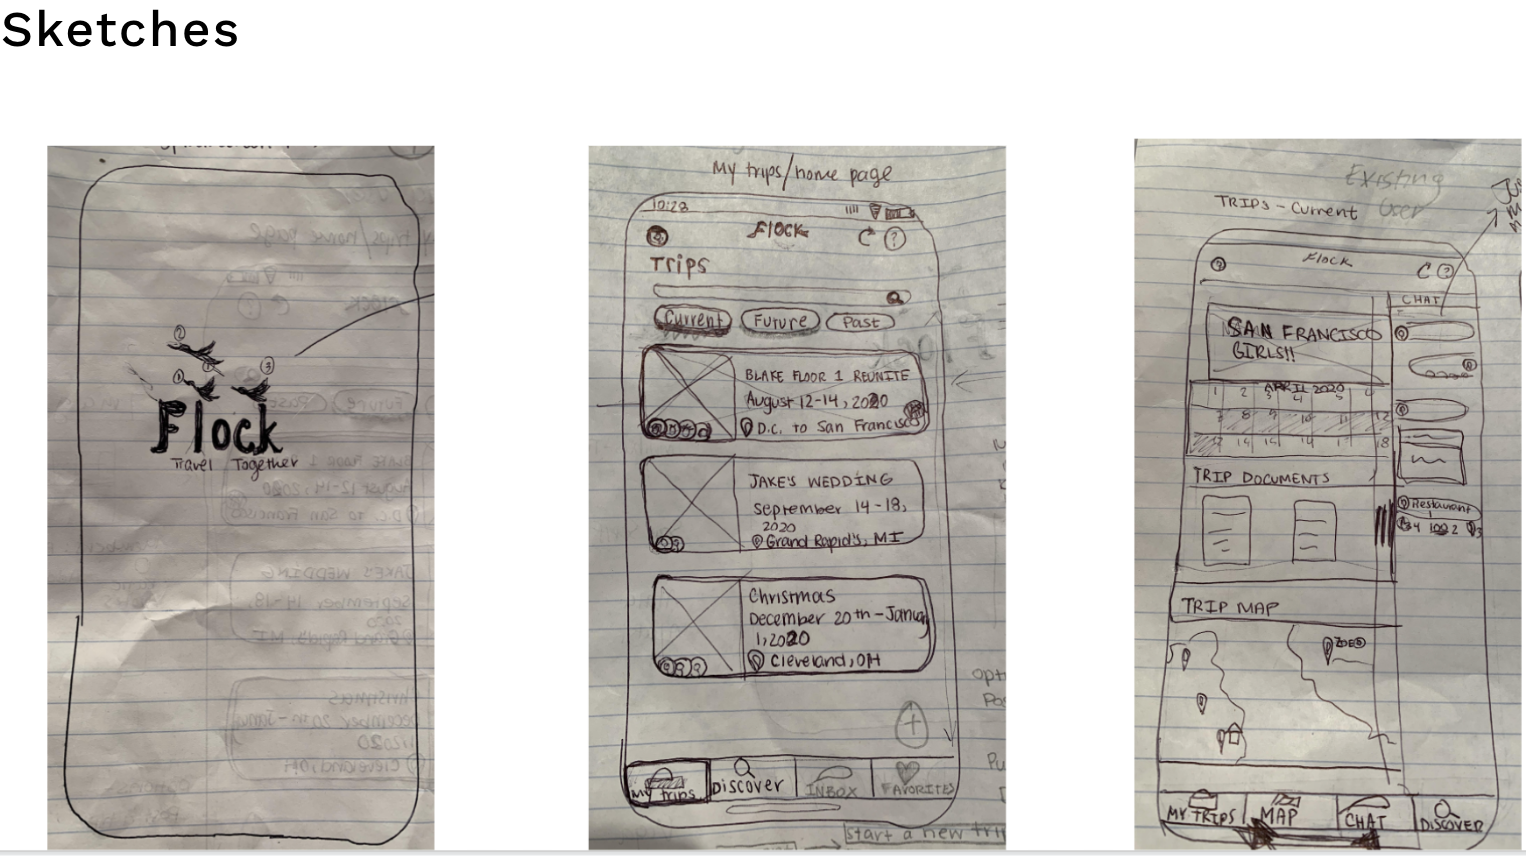 Sketches
2
1
3
Flock
Travel Together
My trips/home page
10:28
Flock
?
Trips
Current
Future
Past
BLAKE FLOOR 1 REUNITE
August 12-14, 2020
D.C. to San Francisco
JAKE'S WEDDING
September 14-18,
2020
Grand Rapids, MI
Christmas
December 20th - January
1, 2020
Cleveland, OH
+
My Trips
Discover
INBOX
FAVORITES
start a new trip
Existing
User
TRIPS - Current
Flock
?
CHAT
SAN FRANCISCO
GIRLS!!
APRIL 2020
1 2 3 4 5
8 9 10 11 12
14 18
TRIP DOCUMENTS
Restaurant
TRIP MAP
MY TRIPS
MAP
CHAT
DISCOVER